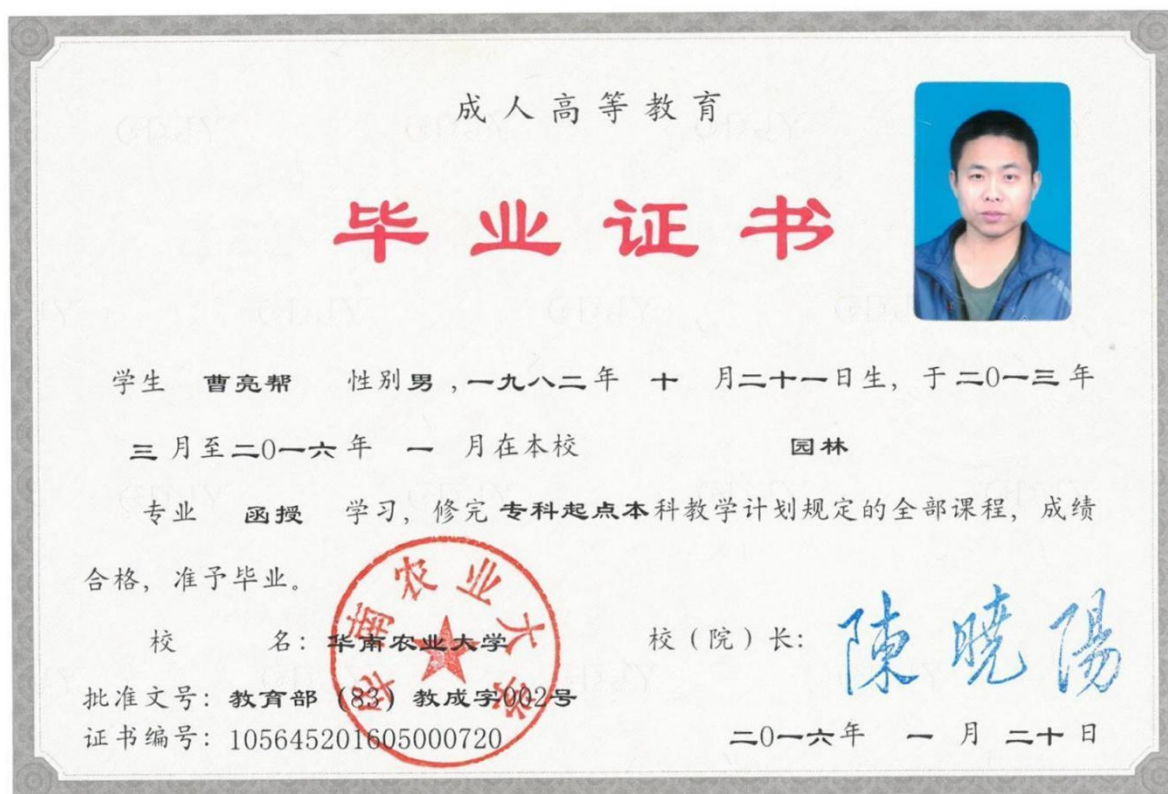 成人高等教育
毕业证书
学生 曹亮帮 性别男,一九八二年 十 月二十一日生, 于二0一三年
三月至二0一六年 一 月在本校 园林
专业 函授 学习, 修完专科起点本科教学计划规定的全部课程, 成绩
合格, 准予毕业。
校 名: 华南农业大学 校(院)长: 陳曉陽
批准文号: 教育部 (83) 教成字002号
证书编号: 105645201605000720 二0一六年 一 月 二十日
华南农业大学